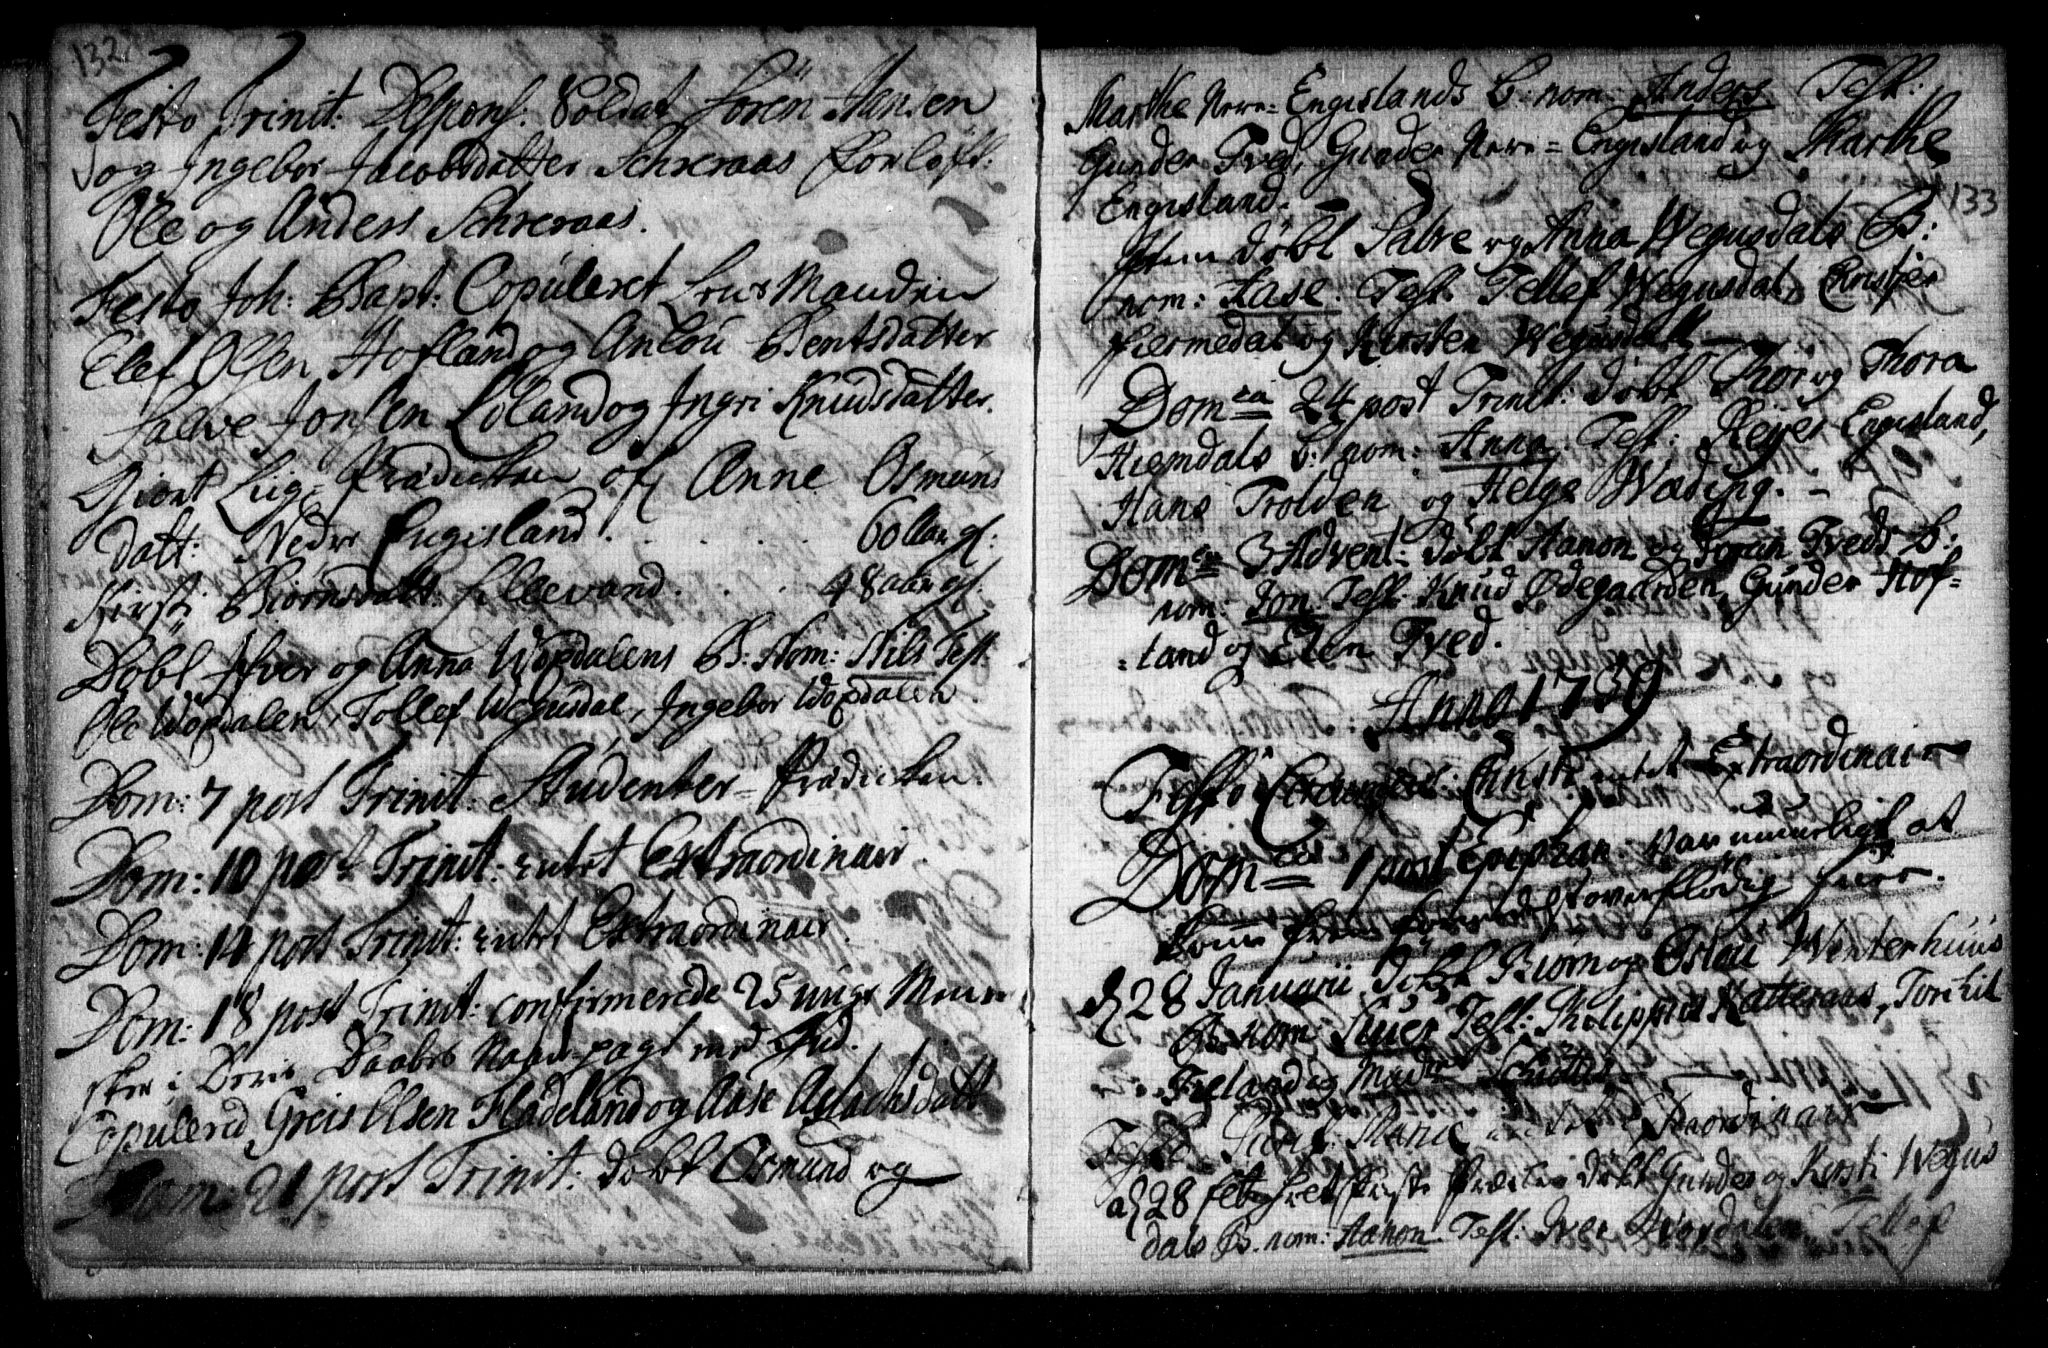 132
Festo Trinit: Despons: Soldat Sören Hansen
og Ingebor Jacobsdatter Schreraas Forlöft:
Ole og Anders Schreraas.
Festo Joh: Bapt: Copuleret
Elef Olsen Hofland og Anlou Bentsdatter
Salve Jonsen Löland og Ingri Knudsdatter.
Giort Liig-Prædicken of Anne Osmuns
datt: Nedre Engisland. . . . . 60 aar gl:
Kirsti Biörnsdatt: Ellevand. . . . 48 aar gl.
Döbt Ifver og Anna Wopdalens B: Nom: Nils Test.
Ole Wopdalen, Tollef Wegusdal, Ingebor Wopdalen.
Dom: 7 post Trinit: Studenter-Prædicken.
Dom: 10 post Trinit: Extraordinair.
Dom: 14 post Trinit: Extraordinair.
Dom: 18 post Trinit: confirmerede 25 unge Menne
sker i Deris Daabes Naade-pagt med Gud.
Copulered Greis Olsen Fladeland og Aase Aslachsdatt
Dom: 21 post Trinit: döbt Osmund og
Marthe Nere-Engislands B: nom: Anders Test:
Gunder Tved, Gunder Nere-Engisland og Marthe
Engisland.
133
Item döbt Salve og Anna Wegusdals B:
nom: Aase. Test. Tellef Wegusdal, Christfer
Hiermedal og Kirsten Wegusdall
Domca 24 post Trinit: döbt Thor og Thora
Hiemdals B: nom: Anna. Test: Reyer Engisland,
Hans Trolden og Helge Wæding.
Domca 3 Advent: döbt Aanon og Joran Tveds B:
nom: Jon. Test: Knud Ødegaarden, Gunder Hof-
land og Elen Tved.
Anno 1739
Festo Circumcis: Christi Extraordinair
Domca 1 post Epiphan: var umueligt at
overflödig
d 28 Januarii döbt Biörn og Aslau Winterhuus
B: nom: Siver Test: Philippus Katteraas, Torkil
Freland og
Festo Purif: Mariæ Extraordinair
d 28 feb: döbt Gunder og Kirsti Wegus
dals B. nom: Aanon. Test: Iver Wopdalen Tellef